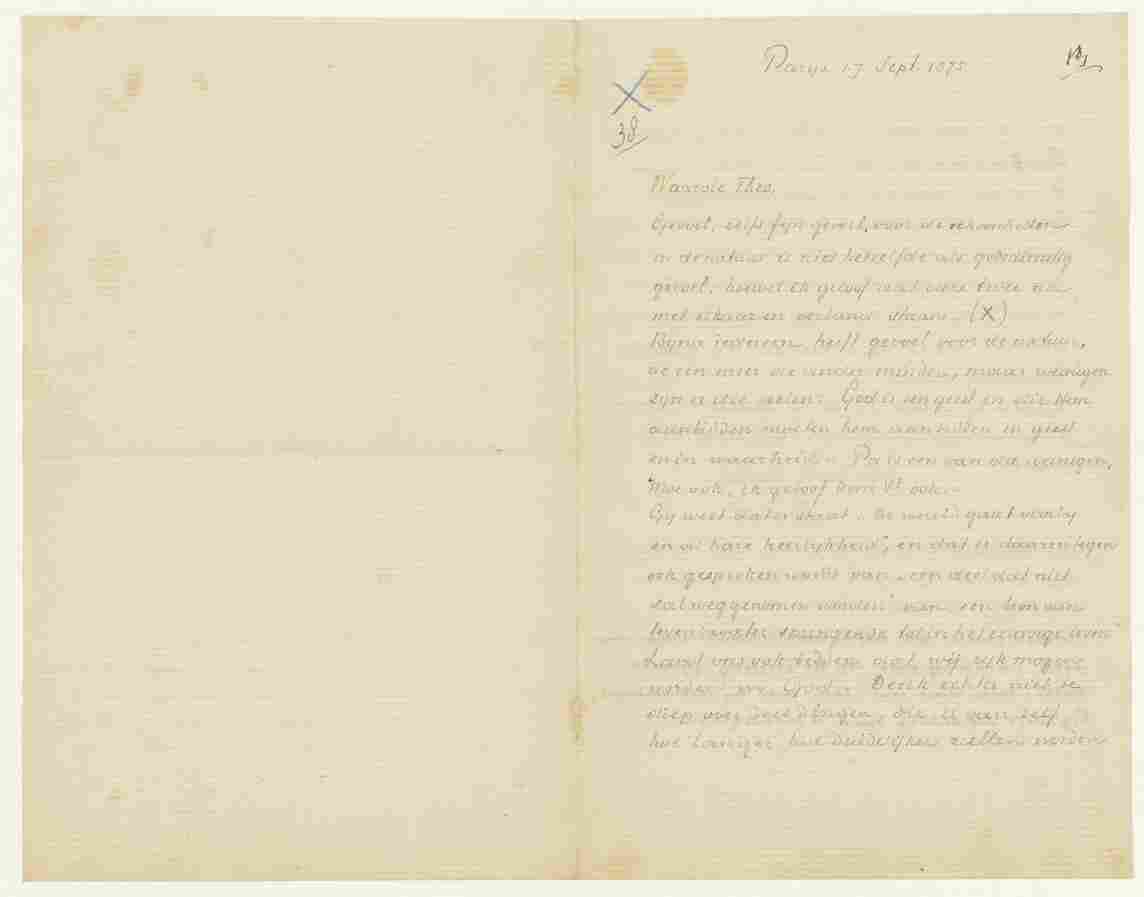 Parijs 17 Sept. 1875
38
Waarde Theo,
Gevoel, zelfs fijn gevoel, voor de schoonheden
in de natuur is niet hetzelfde als godsdienstig
gevoel, hoewel ik geloof dat deze twee in
met elkaar in verband staan. (X)
Bijna iedereen heeft gevoel voor de natuur,
de een meer de ander minder, maar weinigen
zijn er die voelen: God is een geest en die Hem
aanbidden moeten hem aanbidden in geest
en in waarheid. Pa is een van die weinigen,
Moe ook, ik geloof Oom Vt ook.
Gij weet dat er staat „De wereld gaat voorbij
en al hare heerlijkheid", en dat er daarentegen
ook gesproken wordt van „een deel dat niet
zal weggenomen worden" van een bron van
levend water springende tot in het eeuwige leven"
Laat ons ook bidden dat wij rijk mogen
worden in God. Denk echter niet te
diep over deze dingen, die u van zelf
hoe langer hoe duidelijker zullen worden